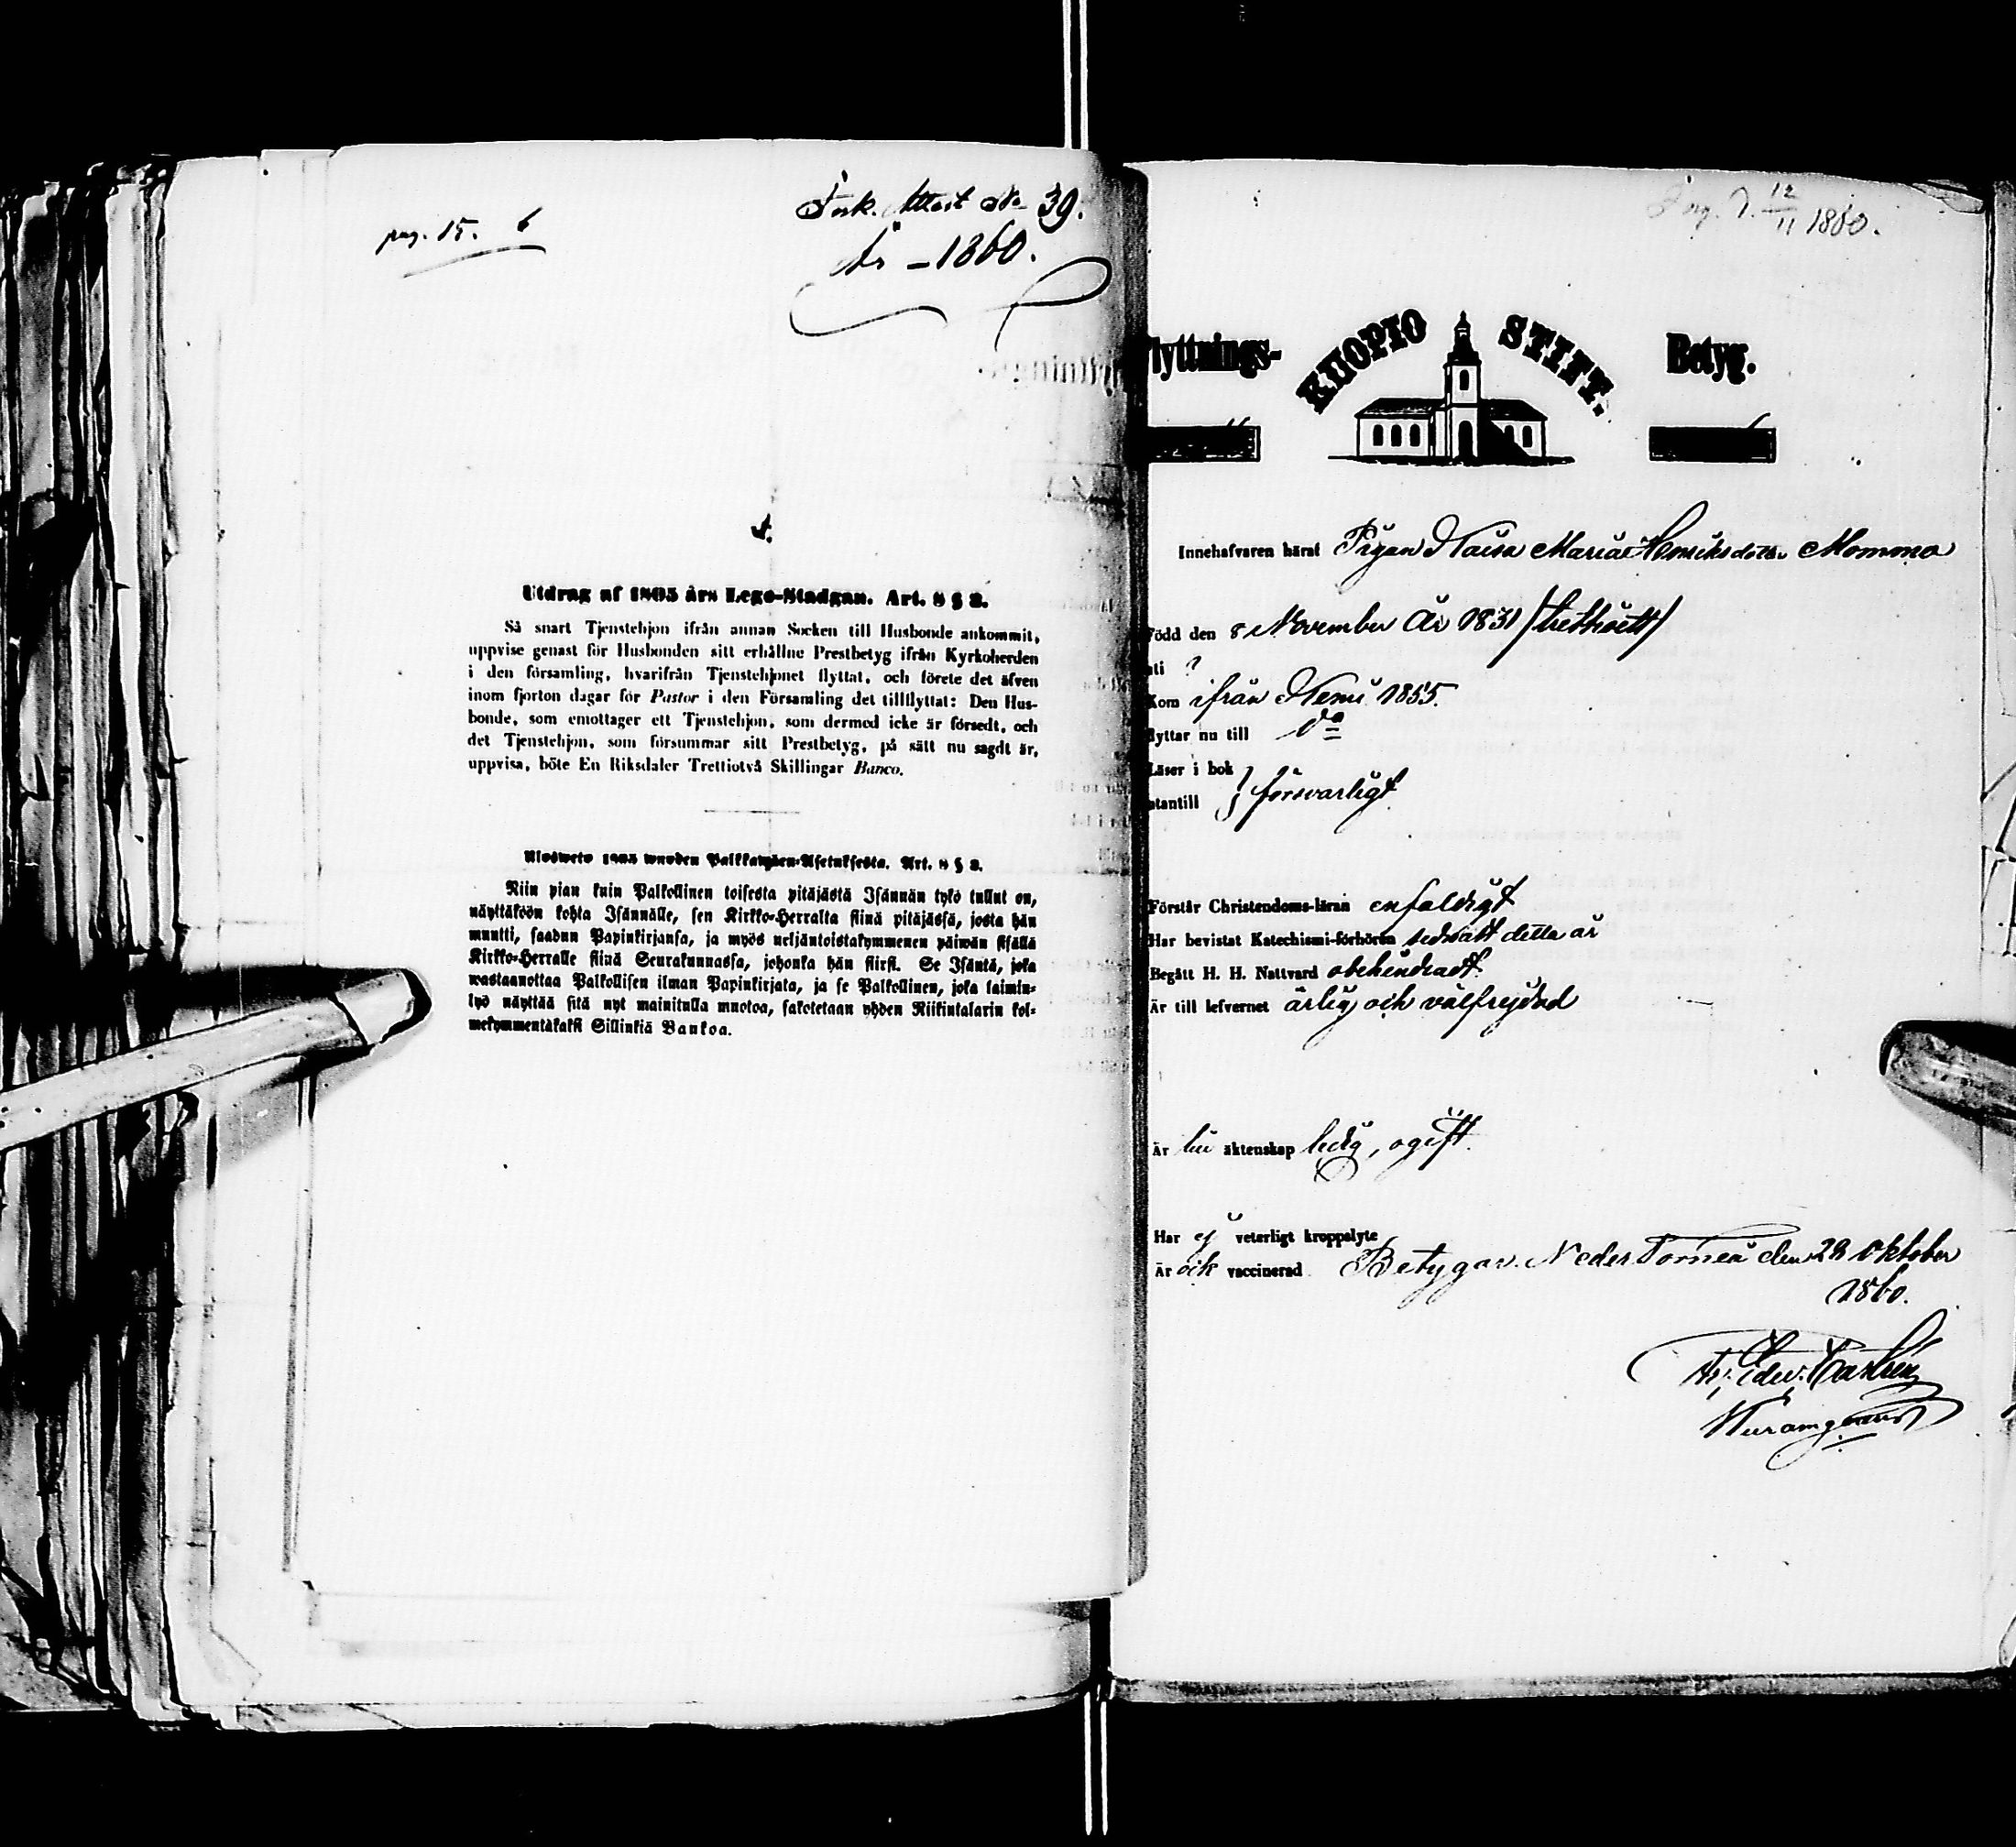 pag. 15. 6
Ink. Attest No 39.
År 1860.
Utdrag af 1805 års Lego-Stadgan. Art. 8 § 2.
Så snart Tjenstehjon ifrån annan Socken till Husbonde ankommit,
uppvise genast för Husbonden sitt erhållne Prestbetyg ifrån Kyrkoherden
i den församling, hvarifrån Tjenstehjonet flyttat, och förete det äfven
inom fjorton dagar för Pastor i den Församling det tillflyttat: Den Hus-
bonde, som emottager ett Tjenstehjon, som dermed icke är försedt, och
det Tjenstehjon, som försummar sitt Prestbetyg, på sätt nu sagdt är,
uppvisa, böte En Riksdaler Trettiotvå Skillingar Banco.
Ulosweto 1805 wuoden Palkkawäen-Asetuksesta. Art. 8 § 2.
Niin pian kuin Palkollinen toisesta pitäjästä Isännän tykö tullut on,
näyttäköön kohta Isännälle, sen Kirkko-Herralta siinä pitäjässä, josta hän
muutti, saadun Papinkirjansa, ja myös neljäntoistakymmenen päiwän sisällä
Kirkko-Herralle siinä Seurakunnassa, johonka hän siirsi. Se Isäntä, joka
wastaanottaa Palkollisen ilman Papinkirjata, ja se Palkollinen, joka laimin-
lyö näyttää sitä nyt mainitulla muotoa, sakotetaan yhden Riikintalarin kol-
mekymmentäkaksi Sillinkiä Bankoa.
Ing. d. 12/11 1860.
lyttnings- KUOPIO STIFT. Betyg.
Innehafvaren härat Pigan Kaisa Maria Henriksdotter Mommo
Född den 8 November År 1831 /trettioett/
ati ?
Kom ifrån Kemi 1855.
lyttar nu till do
Läser i bok
utantill } försvarligt
Förstår Christendoms-läran enfaldigt
Har bevistat Katechismi-förhören sednast detta år
Begått H. H. Nattvard obehindradt
Är till lefvernet ärlig och välfrejdad
Är till äktenskap ledig, ogift.
Har ej veterligt kroppslyte
Är ock vaccinerad Betygar. Neder Torneå den 22 Oktober
1860.